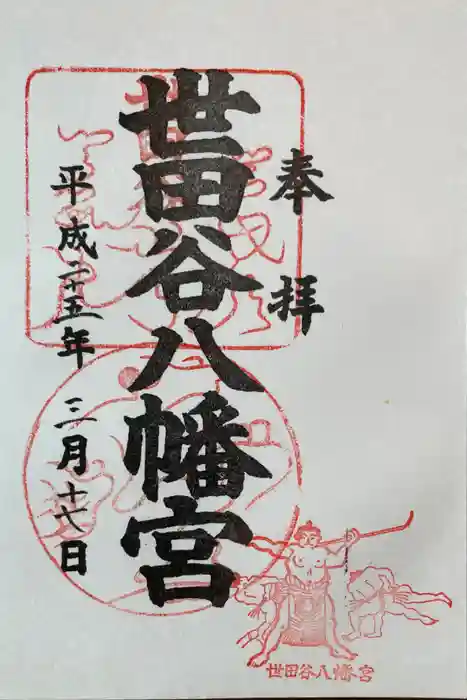 奉拝
世田谷八幡宮
平成二十五年 三月十七日
世田谷八幡宮